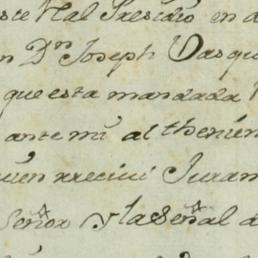 este Ral Presidio en d
n Dn Joseph Vasqu
que esta mandada
ante mi al thenien
uien rrecivi Juram
Señor Y la Señal d